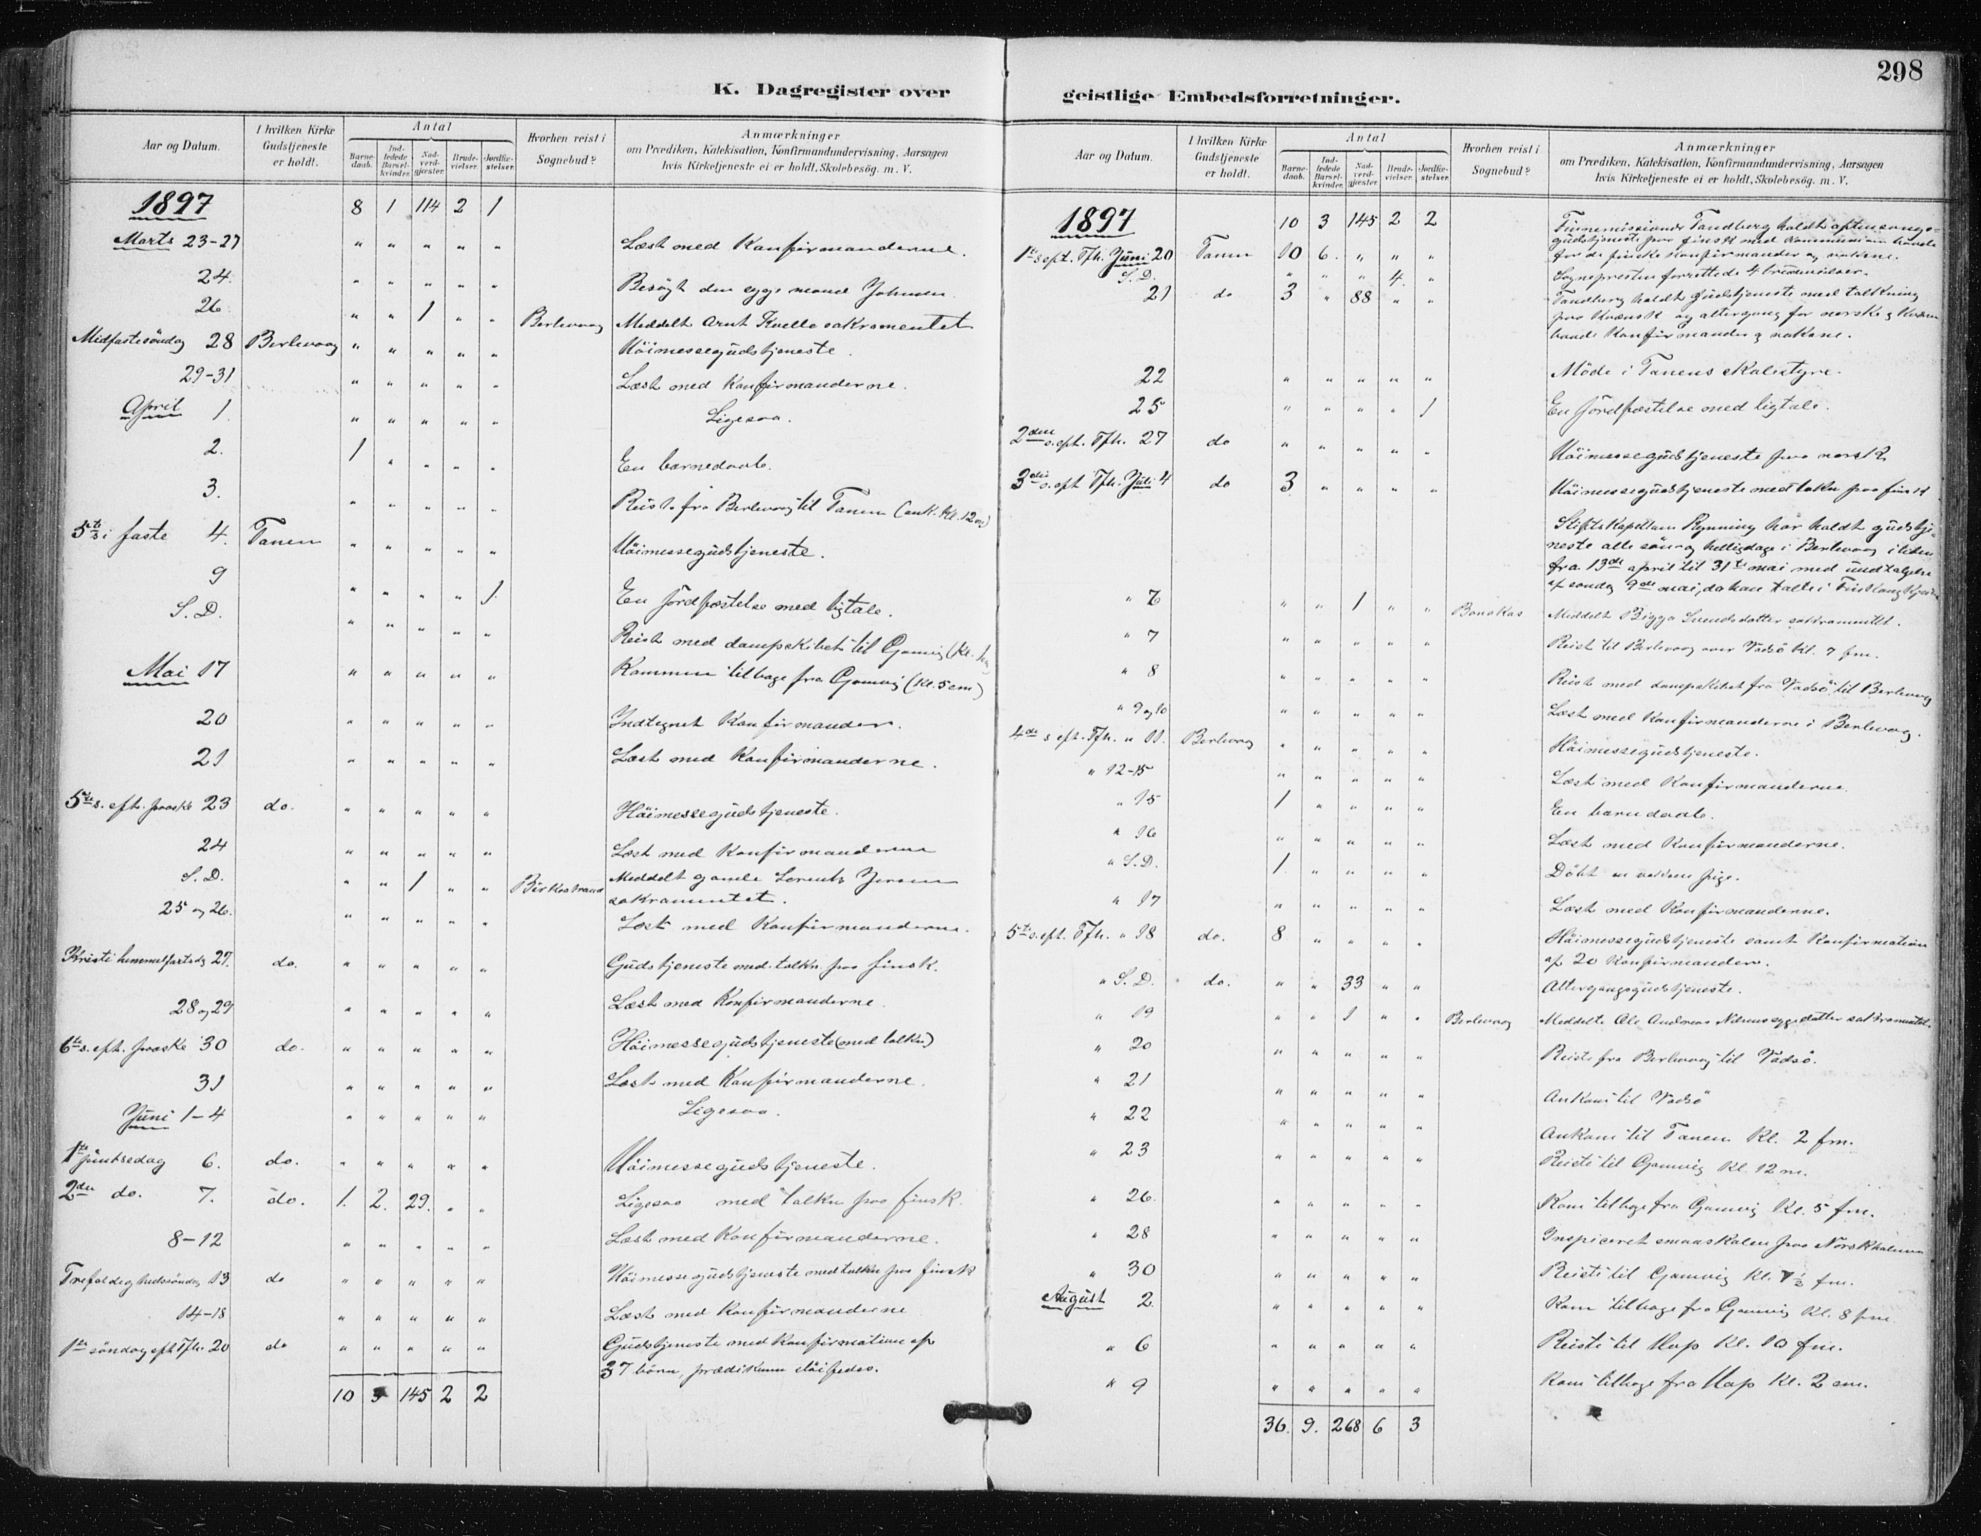 298
K. Dagregister over geistlige Embedsforretninger.
Aar og Datum.
I hvilken Kirke Gudstjeneste er holdt.
Antal
Barnedaab.
Indledede Barselkvinder.
Nadverdgjester.
Brudevielser.
Jordfæstelser.
Hvorhen reist i Sognebud?
Anmærkninger
om Prædiken, Katekisation, Konfirmandundervisning, Aarsagen
hvis Kirketjeneste ei er holdt, Skolebesøg. m. V.
1897 8 1 114 2 1
Marts 23-27 " " " " " Læst med Konfirmanderne.
24. " " " " " Besøgt den syge mand Johnsen
26. " " 1 " " Berlevaag Meddelt Arnt Kvello sakramentet
Midfastesöndag 28 Berlevaag " " " " " Höimessegudstjeneste.
29-31 " " " " " Læst med Konfirmanderne.
April 1. " " " " " Ligesaa.
2. 1 " " " " En barnedaab.
3. " " " " " Reiste fra Berlevaag til Tanen (ank. Kl. 12 m)
5te i faste 4. Tanen " " " " " Höimessegudstjeneste.
9 " " " " 1. En jordfæstelse med ligtale.
S. D. " " " " " Reist med dampskibet til Gamvig
Mai 17 " " " " " Kommen tilbage fra Gamvig (Kl. 5 em)
20 " " " " " Indtegnet Konfirmander.
21 " " " " " Læst med Konfirmanderne.
5te s. eft. paaske 23 do. " " " " " Höimessegudstjeneste.
24 " " " " " Læst med Konfirmanderne
S. D. " " 1 " " Birkestrand Meddelt gamle Lorentz Jensen
sakramentet.
25 og 26. " " " " " Læst med Konfirmanderne.
Kristi himmelfartsdg 27. do. " " " " " Gudstjeneste med tolkn. paa finsk.
28 og 29 " " " " " Læst med Konfirmanderne.
6te s. eft. paaske 30 do. " " " " " Höimessegudstjeneste (med tolkn)
31 " " " " " Læst med Konfirmanderne.
Juni 1-4 " " " " " Ligesaa.
1te pintsedag 6. do. " " " " " Höimessegudstjeneste.
2den do. 7. do. 1. 2. 29. " " Ligesaa med tolkn paa finsk.
8-12 " " " " " Læst med Konfirmanderne.
Trefoldighedssöndag 13 do " " " " " Höimessegudstjeneste med tolkn paa finsk
14-18 " " " " " Læst med Konfirmanderne
1te söndag eft Tfh. 20 do " " " " " Gudstjeneste med Konfirmation af
37 börn, prædikenen
10 3 145 2 2
Aar og Datum.
I hvilken Kirke Gudstjeneste er holdt.
Antal
Barnedaab.
Indledede Barselkvinder.
Nadverdgjester.
Brudevielser.
Jordfæstelser.
Hvorhen reist i Sognebud?
Anmærkninger
om Prædiken, Katekisation, Konfirmandundervisning, Aarsagen
hvis Kirketjeneste ei er holdt, Skolebesøg. m. V.
1897 10 3 145 2 2 Finnemissionær Tandberg holdt aftensangs-
gudstjeneste paa finsk med kommunion
1te s. eft. Tfh. Juni 20 Tanen 10 6. " " " for de finske Konfirmander og voksne.
S. D. " " " 4. " Sognepresten forrettede 4 brudevielser.
21 do 3 " 88 " " Tandberg holdt Gudstjeneste med tolkning
paa Kvænsk og altergang for norske &
Konfirmander & voksne.
22 " " " " " Möde i Tanens skolestyre.
25 " " " " 1 En jordfæstelse med ligtale.
2den s. eft. Tfh. 27 do " " " " " Höimessegudstjeneste paa norsk
3die s. eft Tfh. Juli 4 do 3 " " " " Höimessegudstjeneste med tolkn paa finsk
Stiftskapellan Rynning har holdt gudstj-
neste alle sön- og helligdage i Berlevaag i tiden
fra 13de april til 31te mai med undtagelse
af söndag 9de mai, da han talte i Finkongkjeilen
" 6 " " 1 " " Bonakas Meddelt Bigga Svendsdatter sakramentet.
" 7 " " " " " Reist til Berlevaag over Vadsö kl. 7 fm.
" 8 " " " " " Reist med dampskibet fra Vadsö til Berlevaag
" 9 og 10 " " " " " Læst med Konfirmanderne i Berlevaag.
4de s. eft. Tfh. " 11. Berlevaag " " " " " Höimessegudstjeneste.
" 12-15 " " " " " Læst med Konfirmanderne
" 15 1 " " " " En barnedaab.
" 16 " " " " " Læst med Konfirmanderne.
" S. D. 1. " " " " Döbt en voksen pige.
" 17 " " " " " Læst med Konfirmanderne.
5te s. eft. Tfh. " 18 do. 8 " " " " Höimessegudstjeneste samt Konfirmation
af 20 Konfirmander.
" S. D. do. " " 33 " " Altergangsgudstjeneste.
" 19 " " 1 " " Berlevaag Meddelt Ole Andreas sakramentet.
" 20 " " " " " Reiste fra Berlevaag til Vadsö.
" 21 " " " " " Ankom til Vadsö
" 22 " " " " " Ankom til Tanen Kl. 2 fm.
" 23 " " " " " Reiste til Gamvig Kl. 12 m.
" 26. " " " " " Kom tilbage fra Gamvig Kl. 5 fm.
" 28 " " " " " Inspiceret smaaskolen paa Norskholmen
" 30 " " " " " Reiste til Gamvig Kl. fm.
August 2. " " " " " Kom tilbage fra Gamvig Kl. 8 fm
" 6 " " " " " Reiste til Hop Kl. 10 fm.
" 9 " " " " " Kom tilbage fra Hop Kl. 2 em.
36. 9. 268 6 3